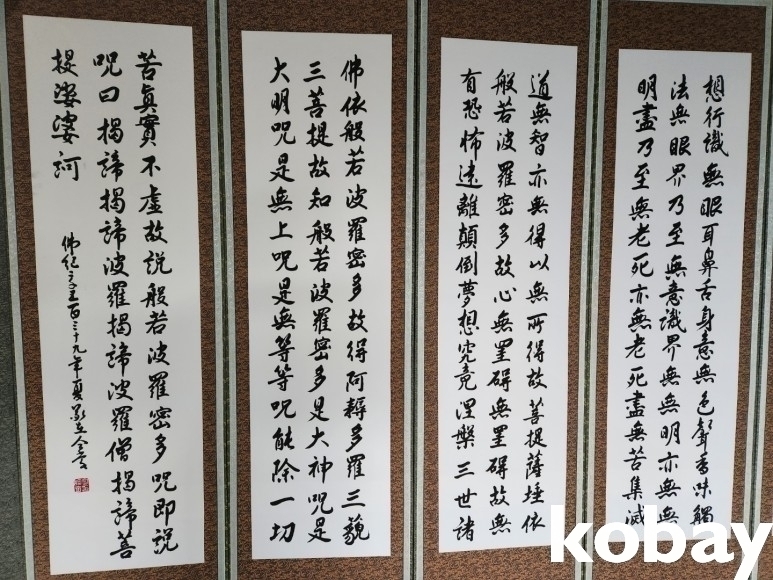 想行識無眼耳鼻舌身意無色聲香味觸
法無眼界乃至無意識界無無明亦無無
明盡乃至無老死亦無老死盡無苦集滅
道無智亦無得以無所得故菩提薩埵依
般若波羅密多故心無罣礙無罣礙故無
有恐怖遠離顛倒夢想究竟涅槃三世諸
佛依般若波羅密多故得阿耨多羅三藐
三菩提故知般若波羅密多是大神咒是
大明咒是無上咒是無等等咒能除一切
苦真實不虛故説般若波羅密多咒即説
咒曰揭諦揭諦波羅揭諦波羅僧揭諦菩
提娑婆訶
佛紀百三十九年夏
kobay